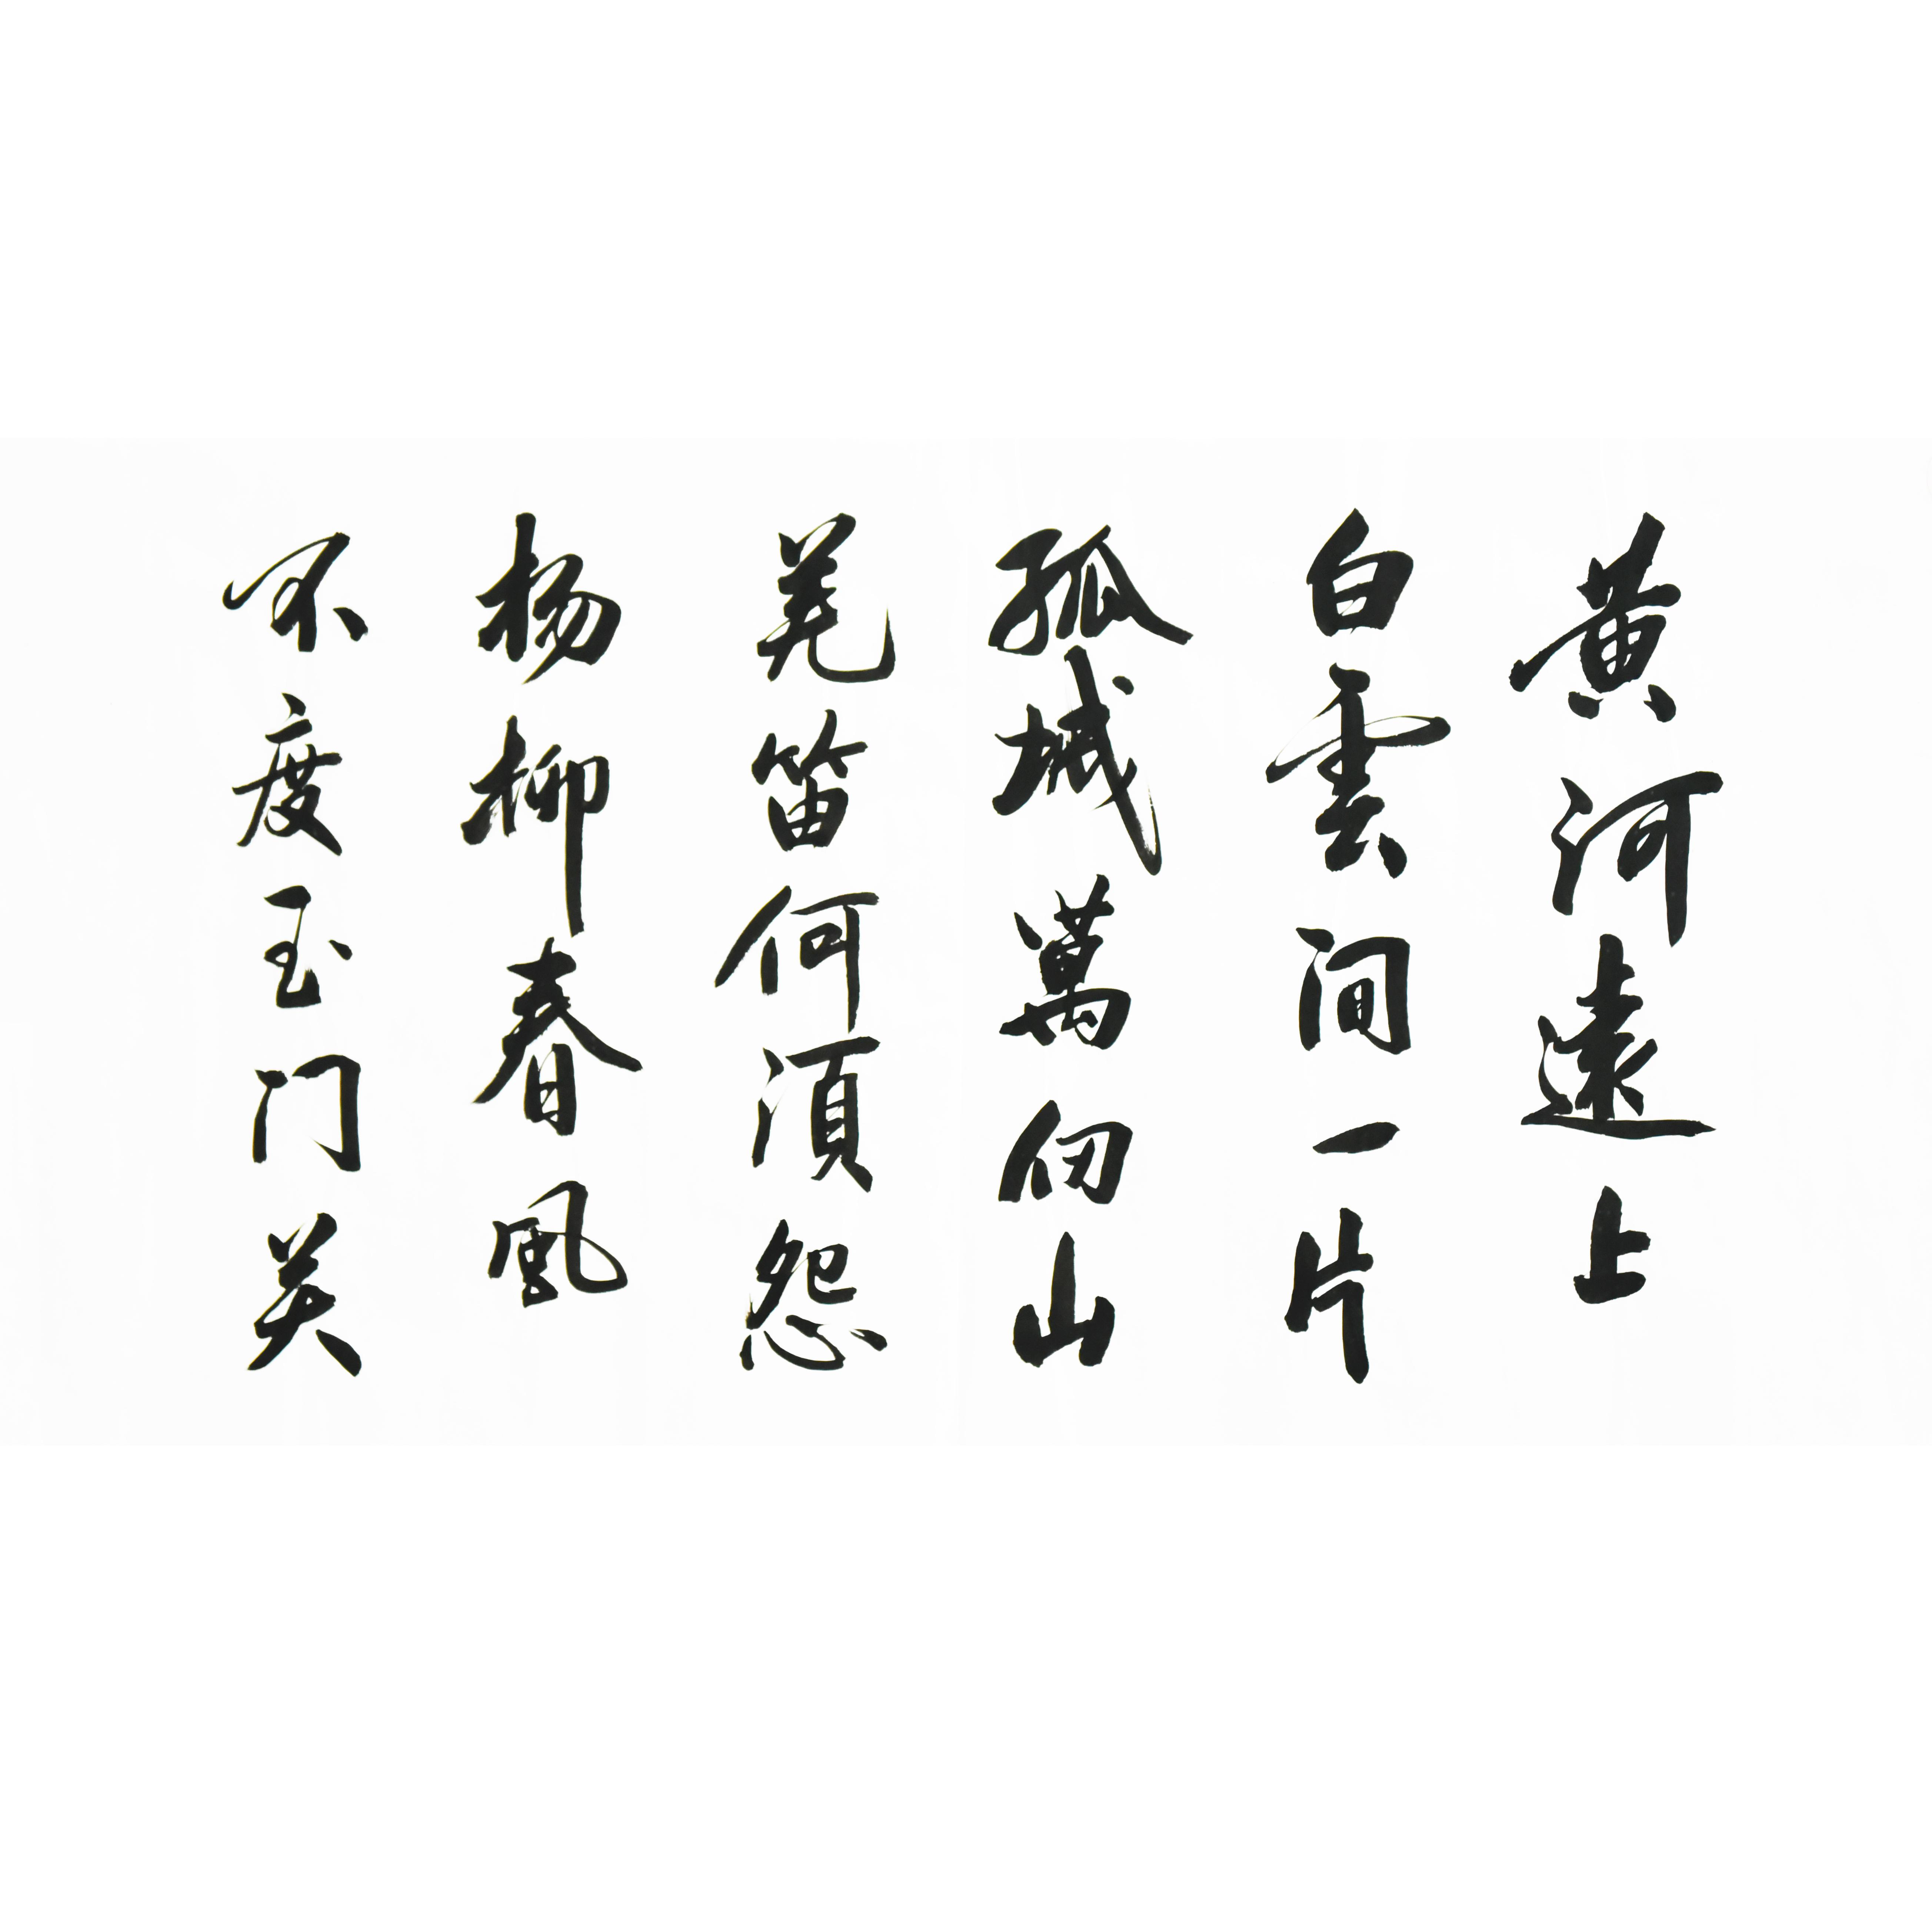 黄河遠上
白雲间一片
孤城萬仞山
羌笛何須怨
杨柳春風
不度玉门关